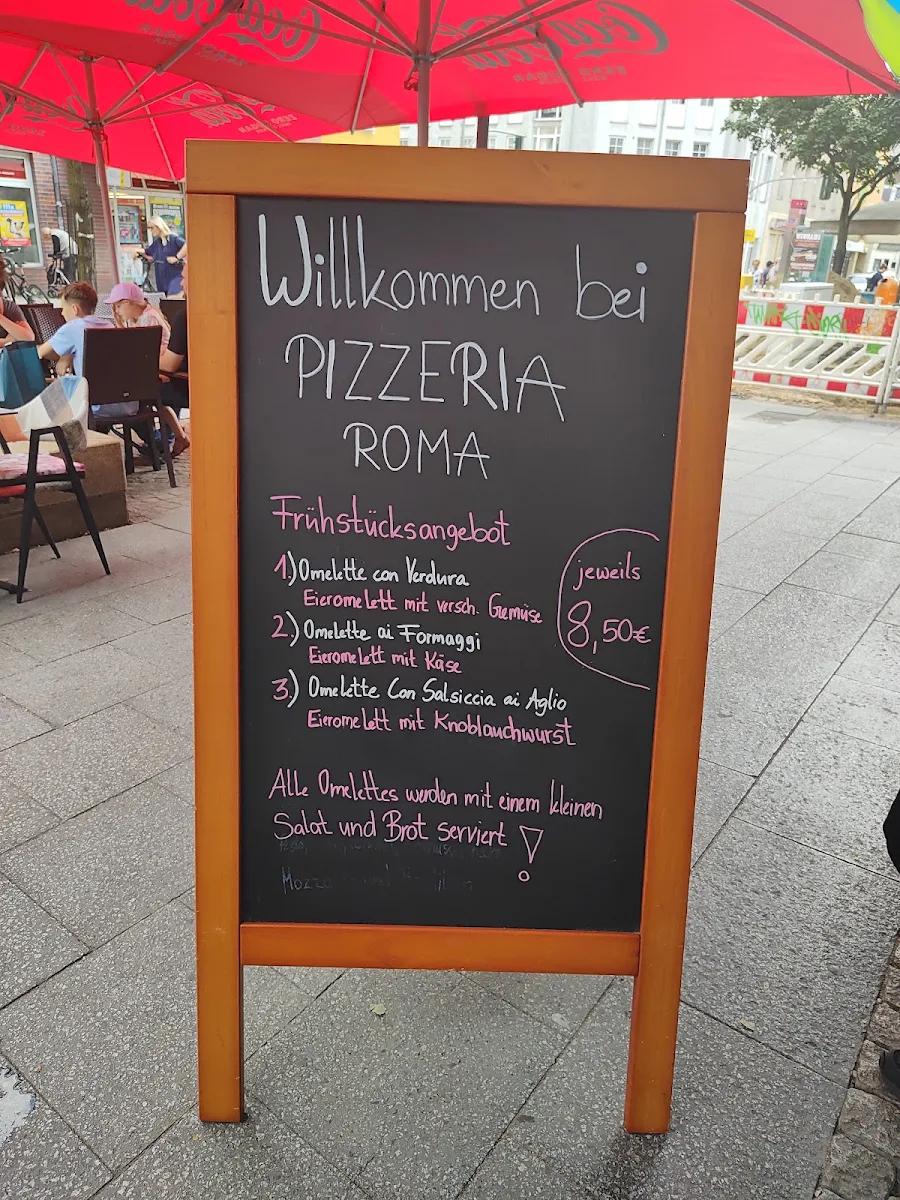 Coca-Cola
Coca-Cola
Willkommen bei
PIZZERIA
ROMA
Frühstücksangebot
1.) Omelette con Verdura
Eieromelett mit versch. Gemüse
2.) Omelette ai Formaggi
Eieromelett mit Käse
3.) Omelette Con Salsiccia ai Aglio
Eieromelett mit Knoblauchwurst
jeweils
8,50€
Alle Omelettes werden mit einem kleinen
Salat und Brot serviert !